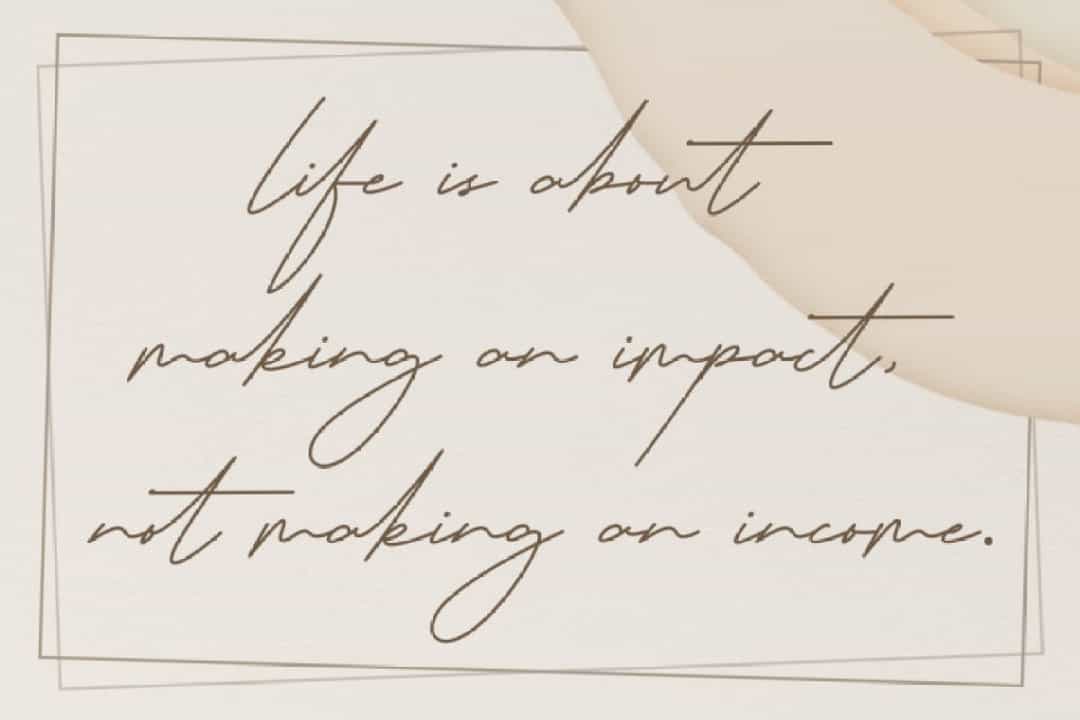 life is about
making an impact,
not making an income.